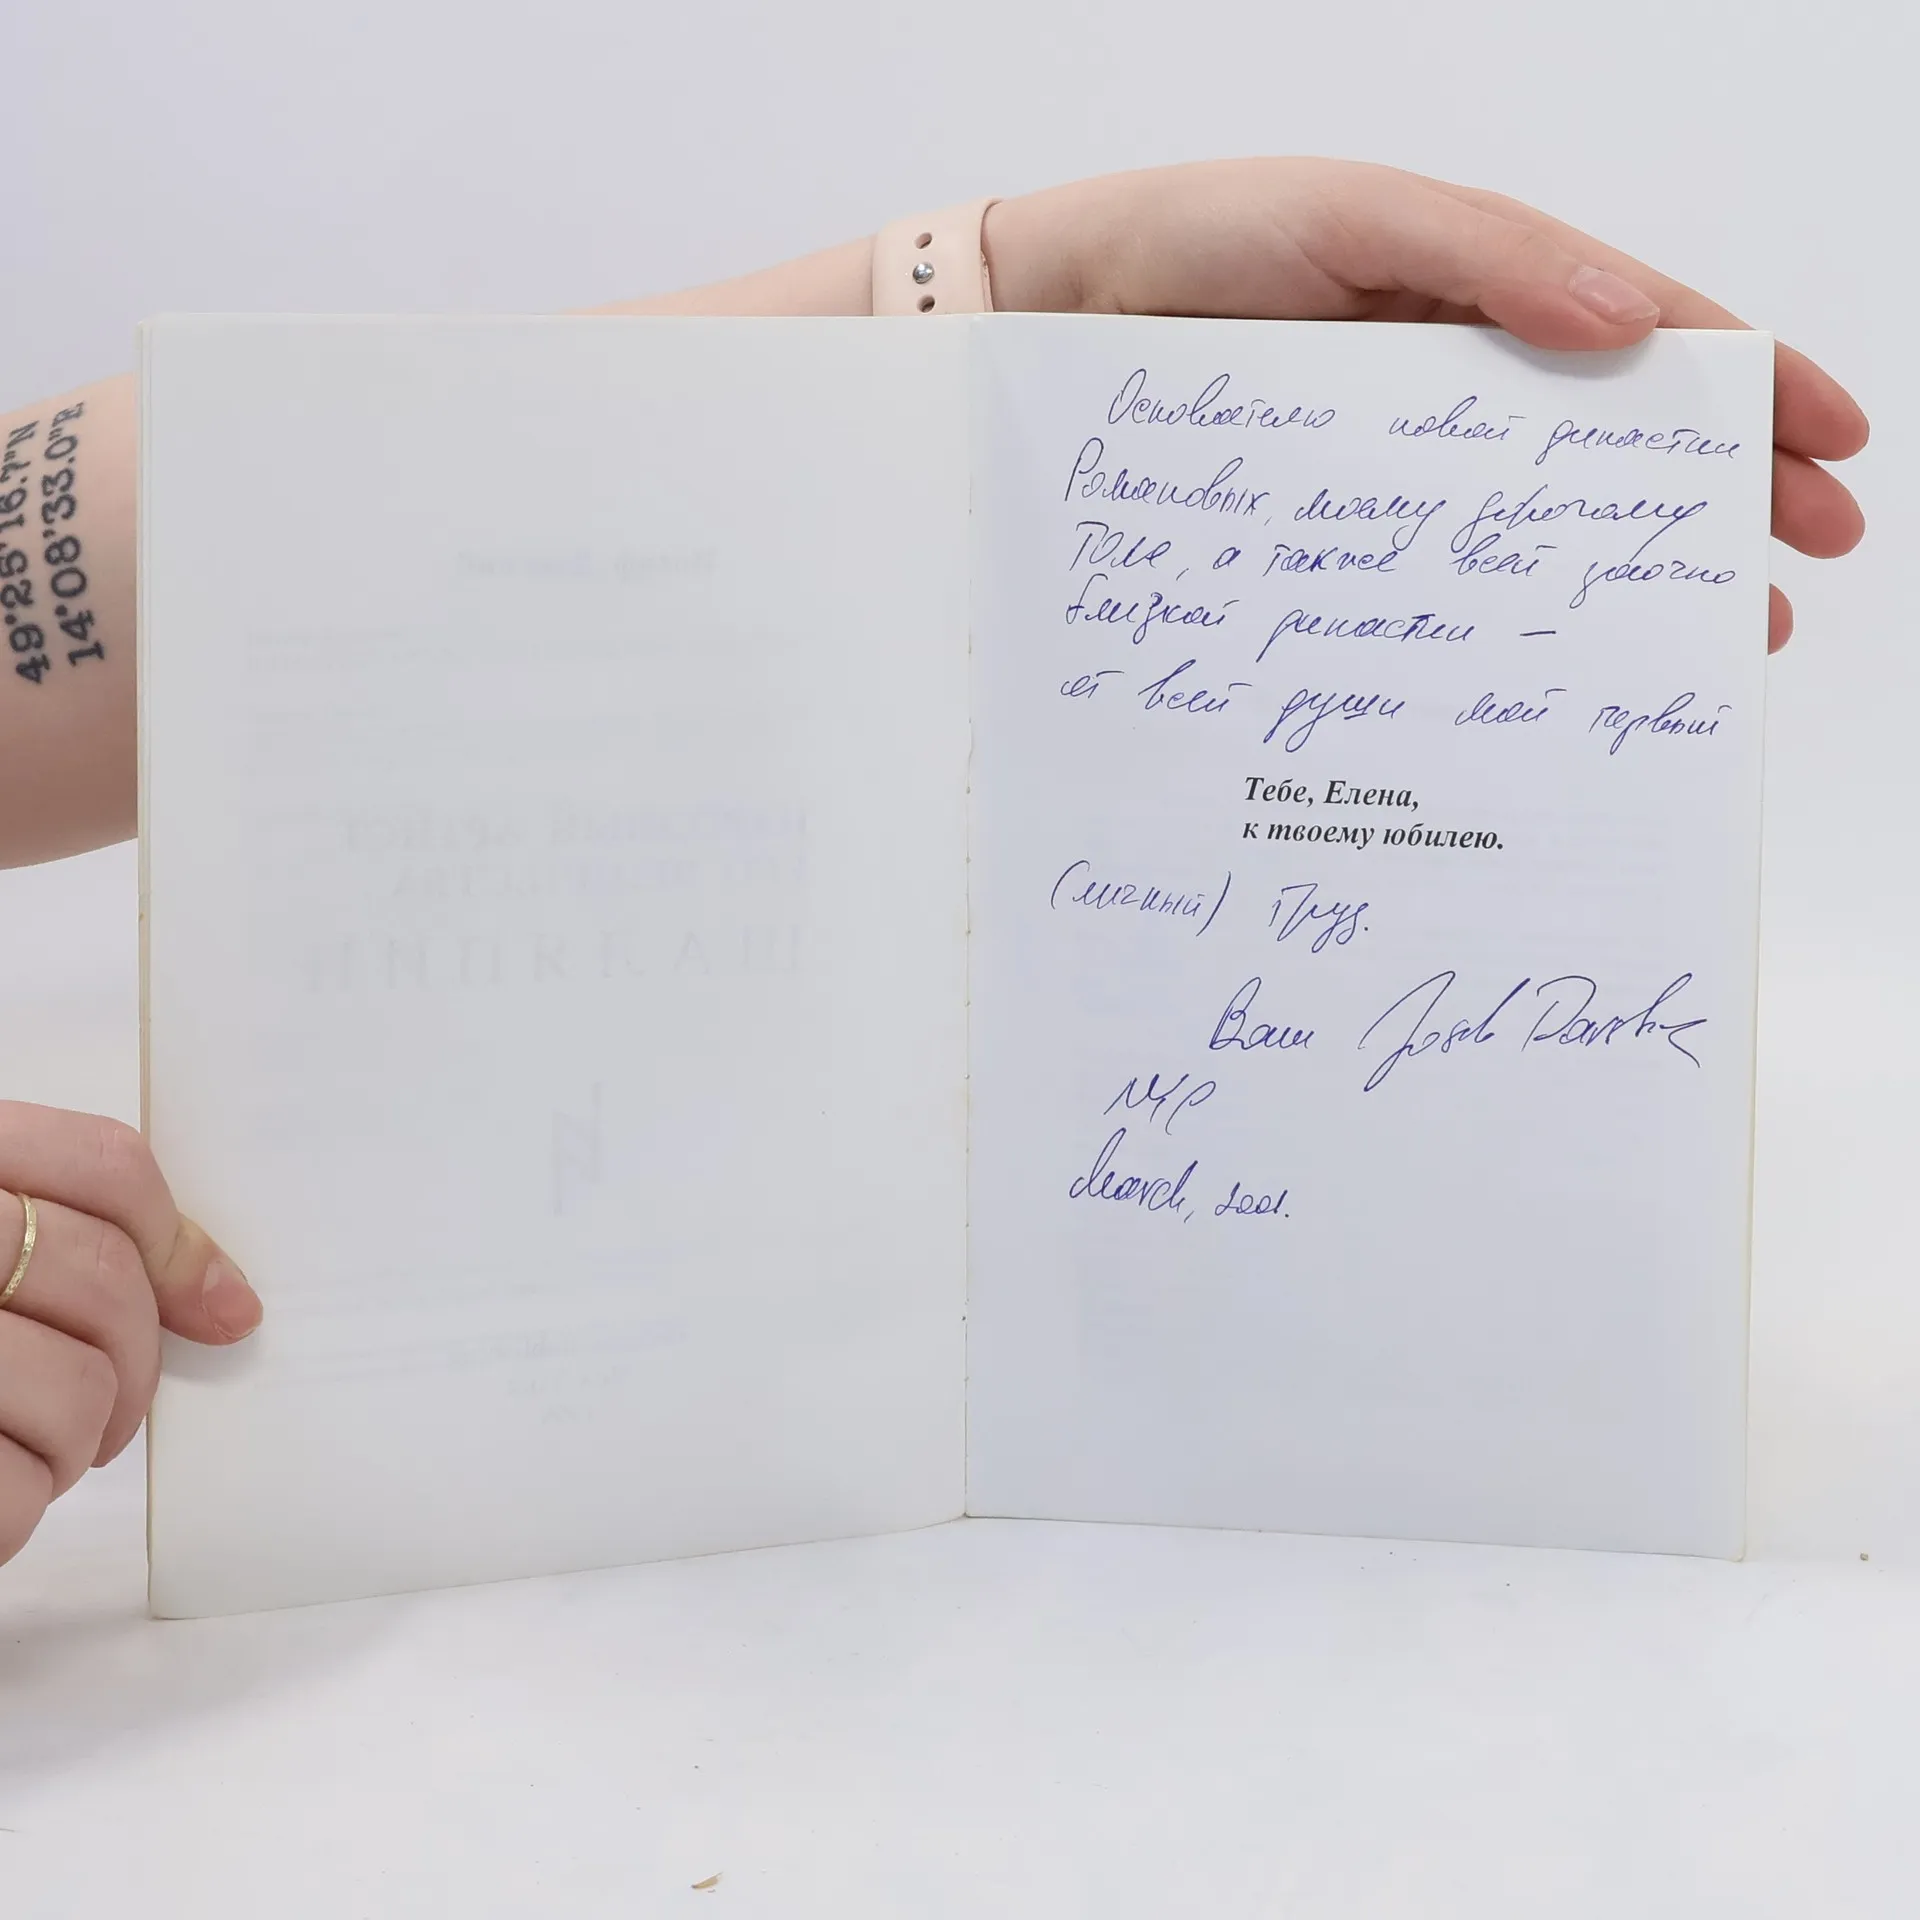 49°25'16.7"N
14°08'33.0"E
Основателю новой династии
Романовых, моему дорогому
Толе, а также всей заочно
близкой династии —
от всей души мой первый
Тебе, Елена,
к твоему юбилею.
(личный) труд.
Ваш Josib
March, 2001.
ШАЛЯПИН